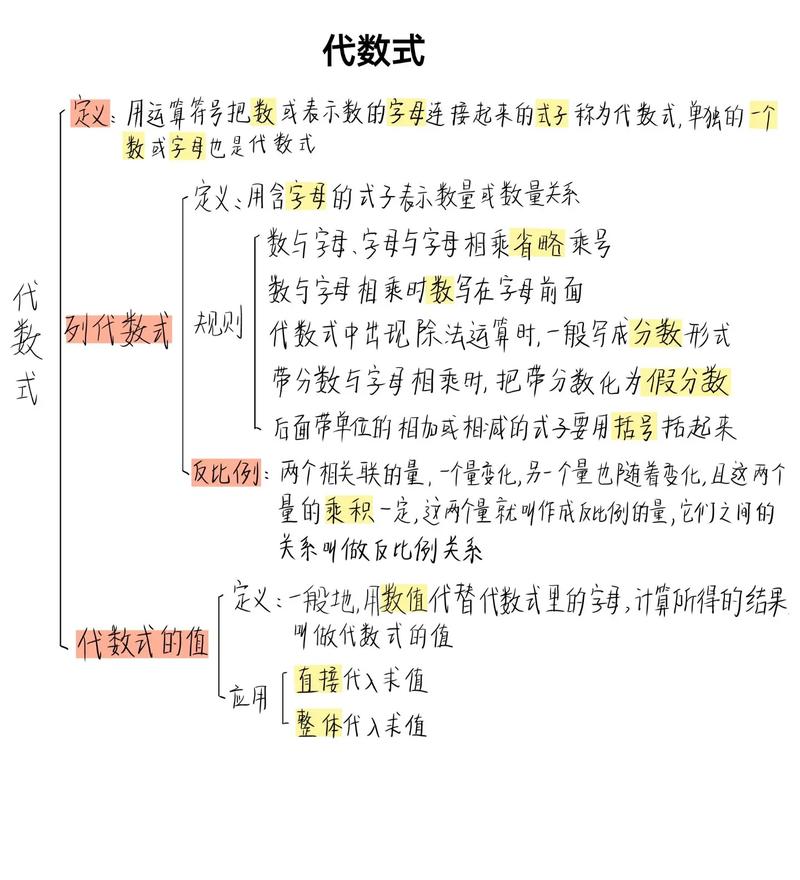 代数式
定义：用运算符号把数或表示数的字母连接起来的式子称为代数式,单独的一个
数或字母也是代数式
定义：用含字母的式子表示数量或数量关系
数与字母、字母与字母相乘省略乘号
数与字母相乘时数写在字母前面
代数式
列代数式
规则
代数式中出现除法运算时,一般写成分数形式
带分数与字母相乘时,把带分数化为假分数
后面带单位的相加或相减的式子要用括号括起来
反比例：两个相关联的量,一个量变化,另一个量也随着变化,且这两个
量的乘积一定,这两个量就叫作成反比例的量,它们之间的
关系叫做反比例关系
代数式的值
定义：一般地,用数值代替代数式里的字母,计算所得的结果
叫做代数式的值
应用
直接代入求值
整体代入求值